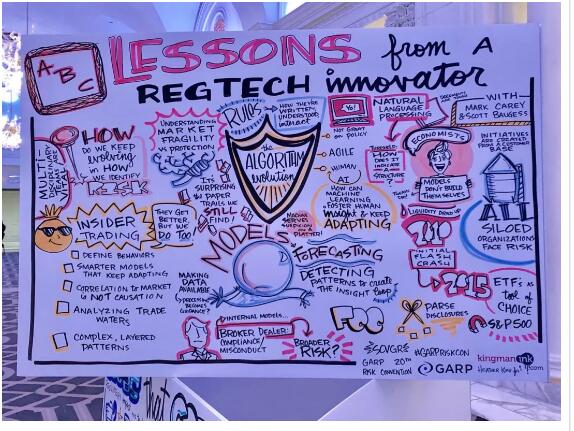 ABC
LESSONS from A
REGTECH innovator
WITH
MARK CAREY
& SCOTT BAUGESS
MULTI-
HOW
DO WE KEEP
evolving
in HOW
WE IDENTIFY
RISK
UNDERSTANDING
MARKET
FRAGILITY
PROTECTION
RULES
HOW THEY'RE
WRITTEN,
UNDERSTOOD,
interact
the
ALGORITHM
evolution
NOT GREAT
AGILE
HUMAN
AI
NATURAL
LANGUAGE
PROCESSING
HOW
DOES IT
INDICATE
STRUCTURE
?
ECONOMISTS
MODELS
DON'T BUILD
THEMSELVES
INITIATIVES
ARE CREATED
FROM A CUSTOMER
ALL
SILOED
ORGANIZATIONS
FACE RISK
INSIDER
TRADING
THEY GET
BETTER,
BUT WE
DO TOO!
IT'S
SURPRISING
PAPER
TRAILS WE
STILL
FIND!
HOW CAN
MACHINE
LEARNING
FOSTER HUMAN
insight & KEEP
ADAPTING
LIQUIDITY DRIED UP
2010
INITIAL
FLASH
CRASH
DEFINE BEHAVIORS
SMARTER MODELS
THAT KEEP ADAPTING
CORRELATION TO MARKET
IS NOT CAUSATION
ANALYZING TRADE
WATERS
COMPLEX, LAYERED
PATTERNS
MODELS
FORECASTING
DETECTING
PATTERNS to create
THE INSIGHT loop
MAKING
DATA
AVAILABLE
BECOMES
GUIDANCE?
2015
ETFs as
tool of
CHOICE
S&P500
INTERNAL MODELS...
BROKER DEALER:
COMPLIANCE/
MISCONDUCT
BROADER
RISK?
PARSE
DISCLOSURES
#GARPRISKCON
GARP 20TH
RISK CONVENTION
GARP
kingmanink
.com
that